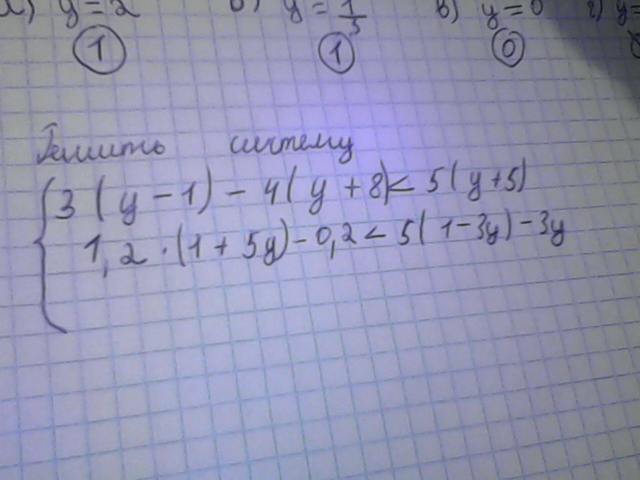 а) y = 2 б) y = 1/5 в) y = 0 г) y =
1 1 0
Решить систему
3(y − 1) − 4(y + 8) < 5(y + 5)
1,2 · (1 + 5y) − 0,2 < 5(1 − 3y) − 3y